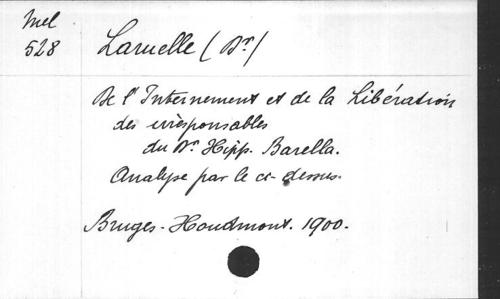 Mel
528
Laruelle (Dr)
De l'Internement et de la Libération
des irresponsables
du Dr Hipp. Barella.
Analyse par le ci-dessus.
Bruges-Houdmont. 1900.